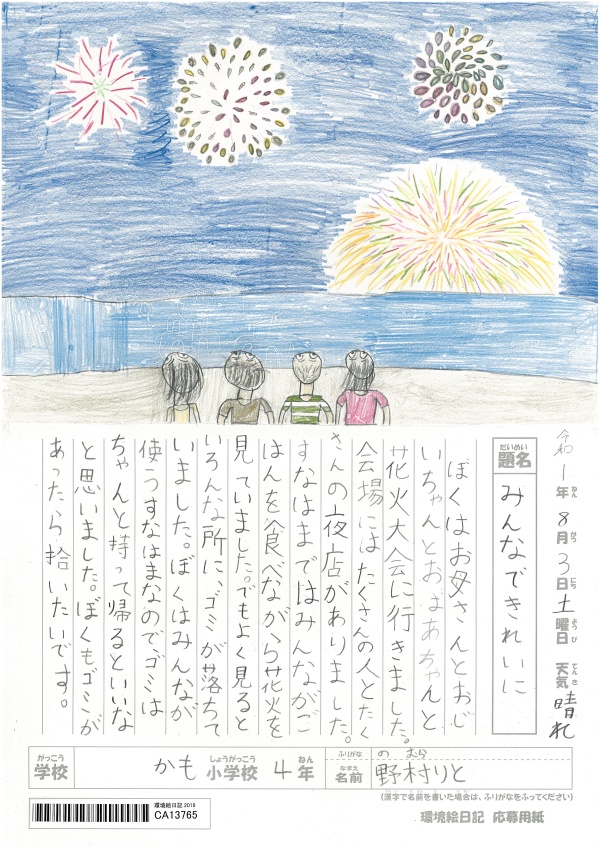 令和1年8月3日土曜日 天気晴れ
ねん がつ にち ようび てんき
だいめい
題名 みんなできれいに
ぼくはお母さんとおじ
いちゃんとおばあちゃんと
花火大会に行きました。
会場にはたくさんの人とたく
さんの夜店がありました。
すなはまではみんながご
はんを食べながら花火を
見ていました。でもよく見ると
いろんな所に、ゴミが落ちて
いました。ぼくはみんなが
使うすなはまなので、ゴミは
ちゃんと持って帰るといいな
と思いました。ぼくもゴミが
あったら拾いたいです。
がっこう しょうがっこう ねん
学校 かも小学校 4年
ふりがな のむら
なまえ
名前 野村りと
(漢字で名前を書いた場合は、ふりがなをふってください)
環境絵日記2019
CA13765
環境絵日記 応募用紙